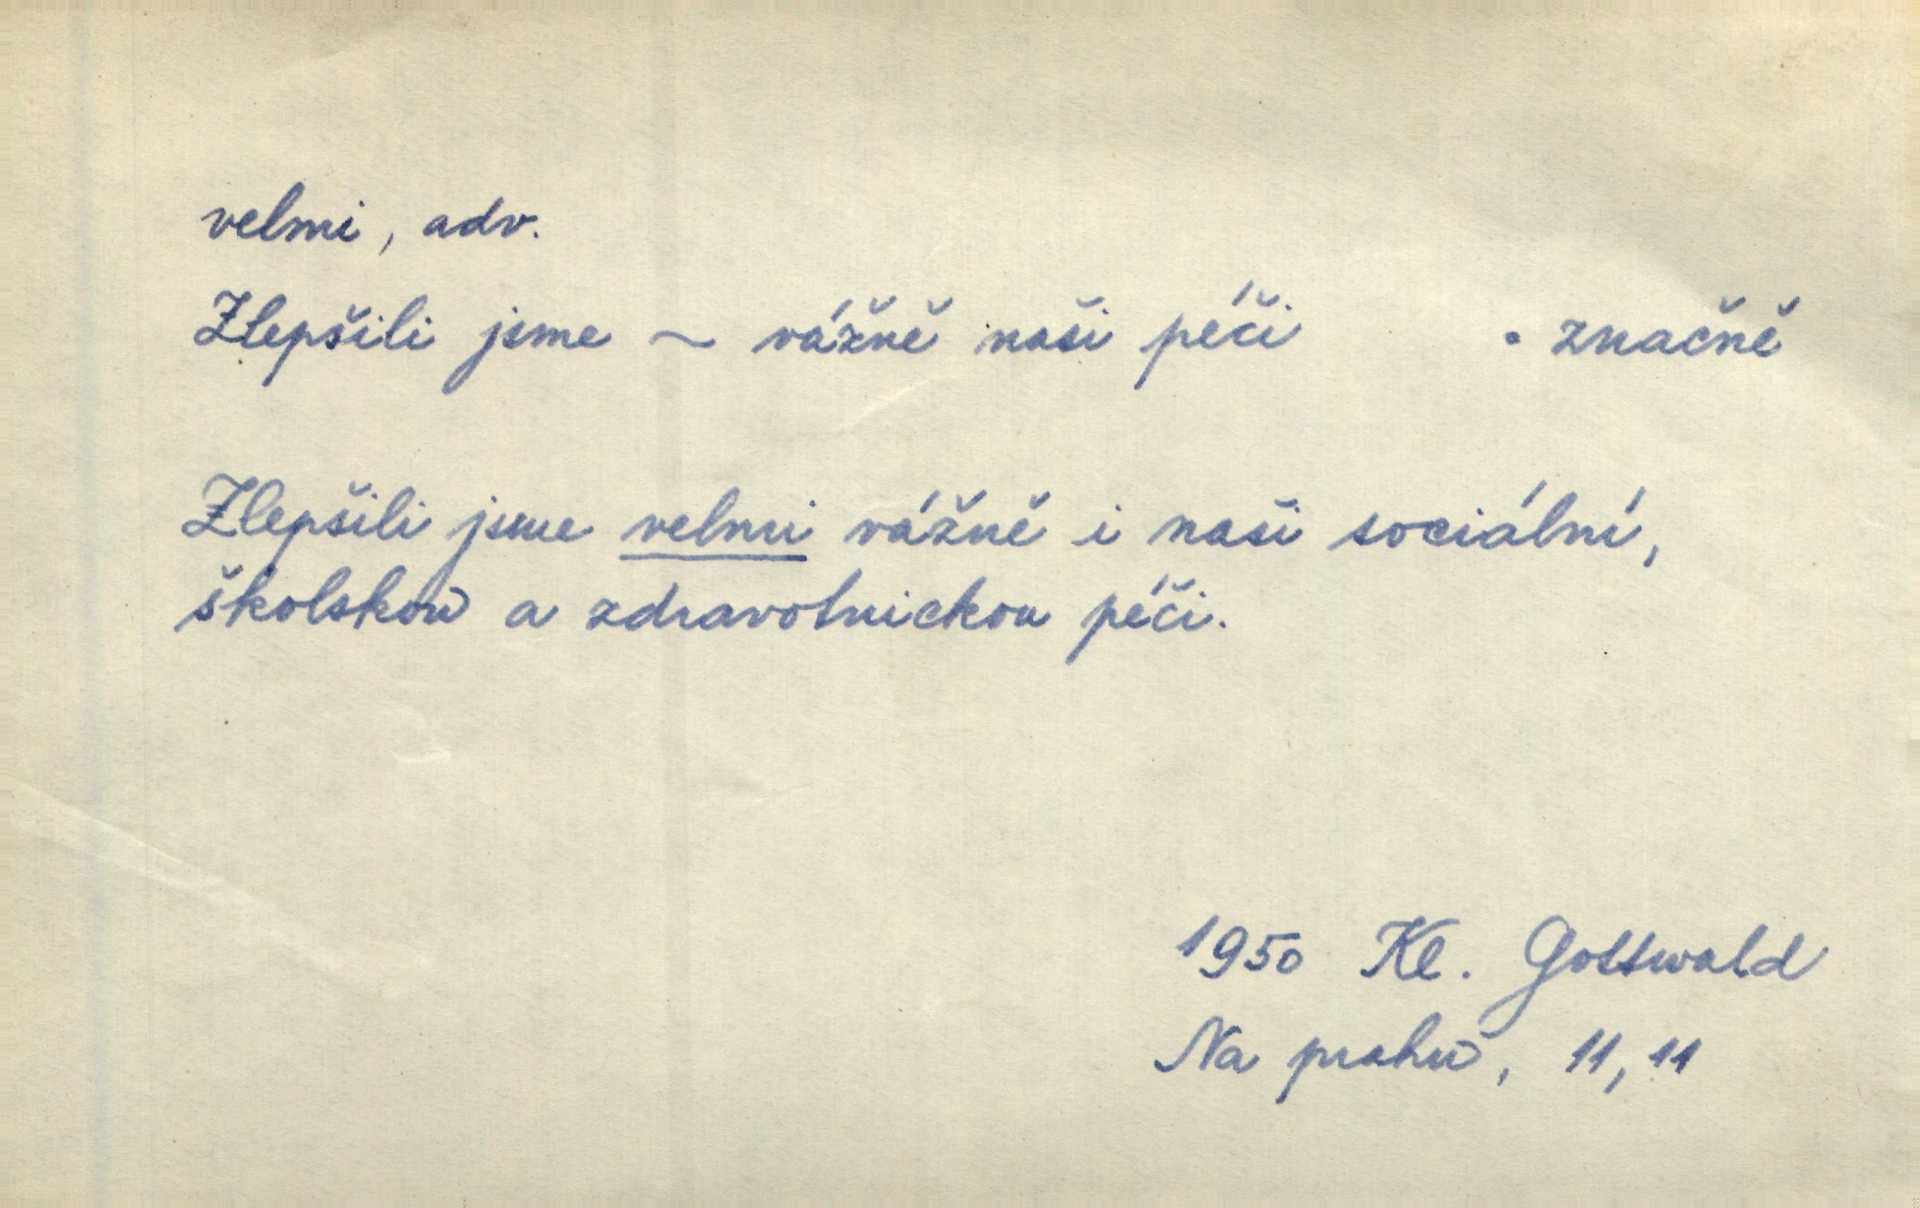 velmi, adv.
Zlepšili jsme ~ vážně naši péči • značně
Zlepšili jsme velmi vážně i naši sociální,
školskou a zdravotnickou péči.
1950 Kl. Gottwald
Na prahu, 11, 11